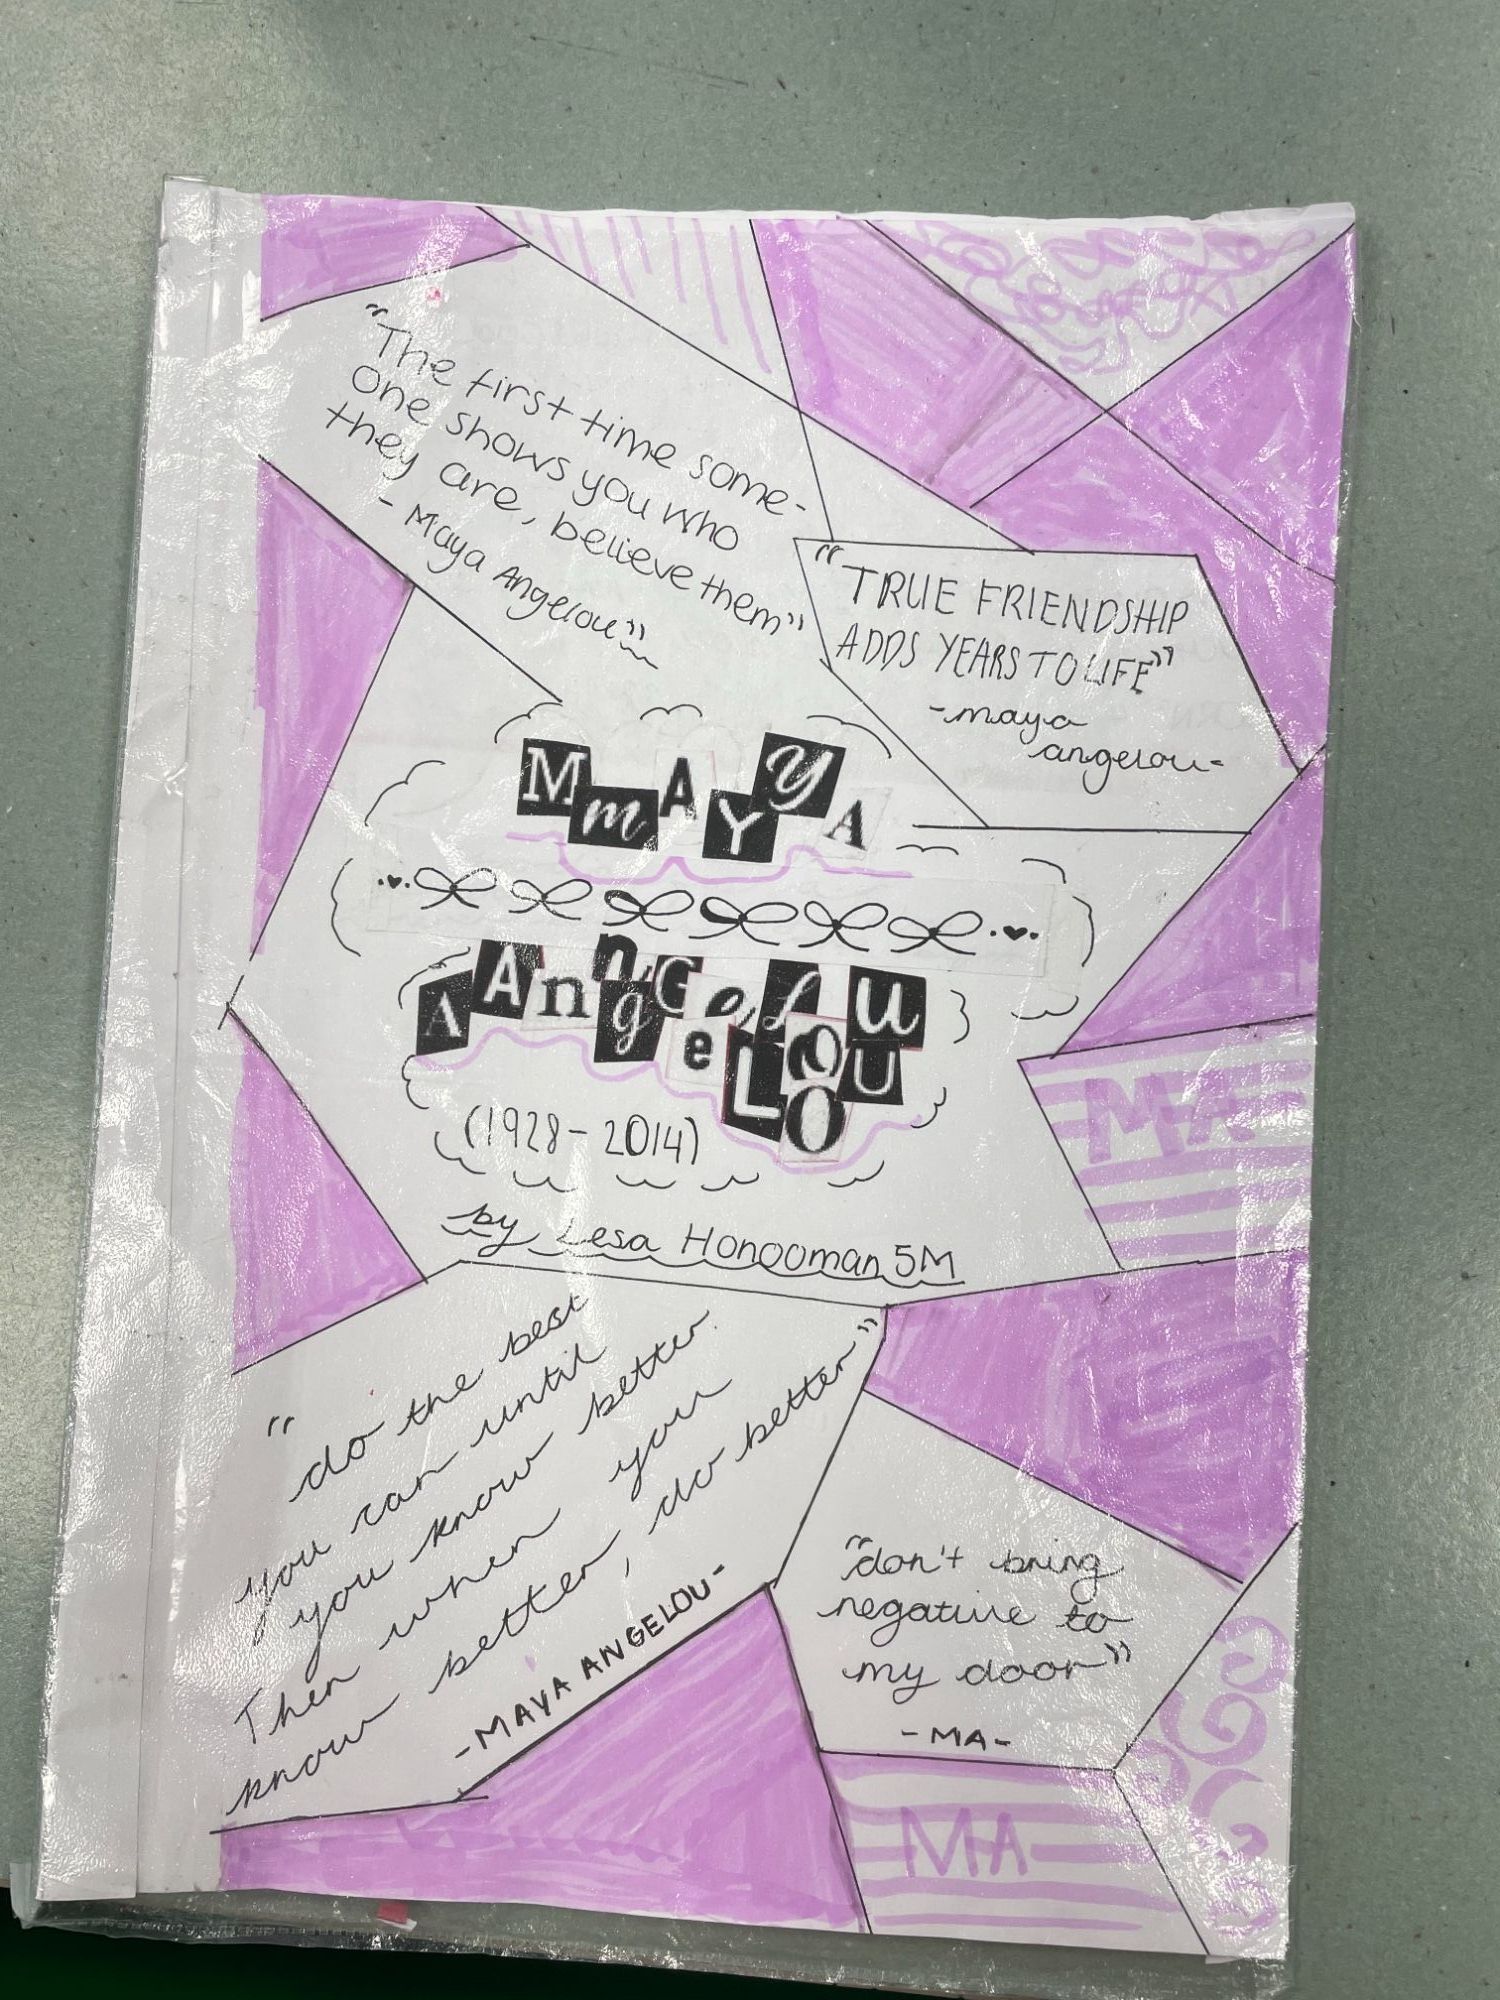 "The first time some-
one shows you who
they are, believe them"
- Maya Angelou"
"TRUE FRIENDSHIP
ADDS YEARS TO LIFE"
-maya
angelou-
MmAYyA
AAnngGeeLlOoUu
(1928-2014)
by Lesa Honooman 5M
MA
"do the best
you can until
you know better.
Then when you
know better, do better"
-MAYA ANGELOU-
"don't bring
negative to
my door"
-MA-
MA